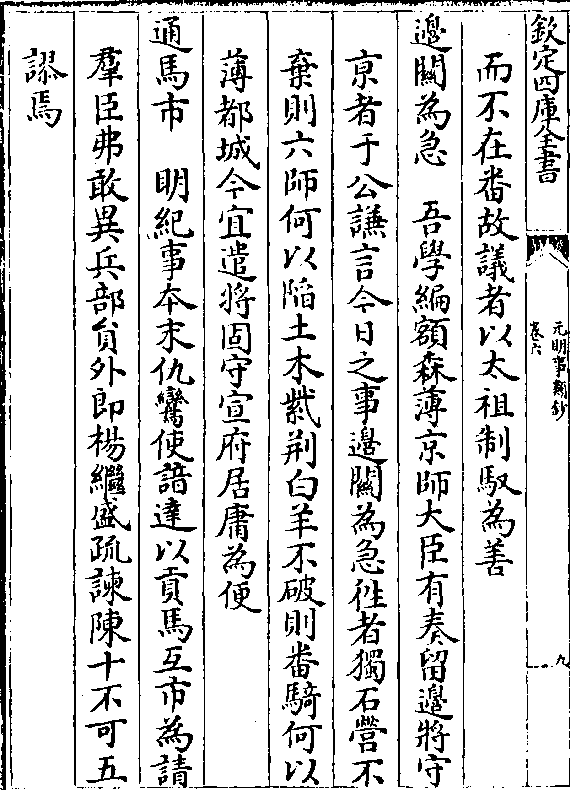 欽定四庫全書
元明事類鈔
卷六
九
而不在番故議者以太祖制馭為善
邊關為急　吾學編額森薄京師大臣有奏留邊將守
京者于公謙言今日之事邊關為急徃者獨石營不
棄則六師何以陷土木紫荆白羊不破則番騎何以
薄都城今宜遣將固守宣府居庸為便
通馬市　明紀事本末仇鸞使諳達以貢馬互市為請
羣臣弗敢異兵部員外郎楊繼盛疏諫陳十不可五
謬焉